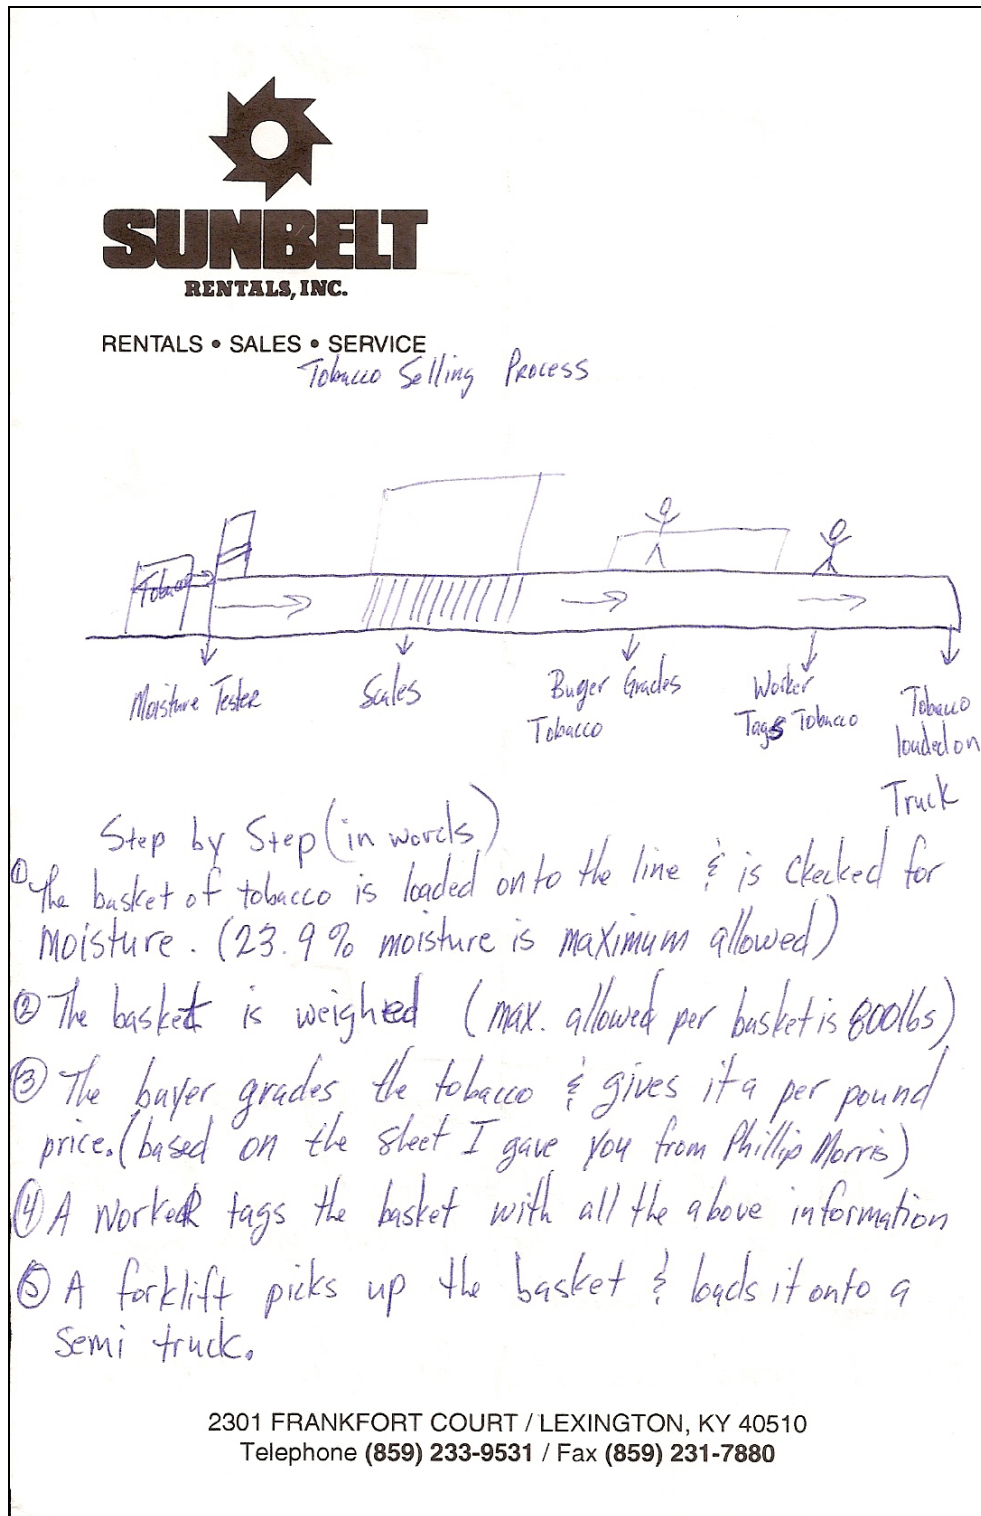 SUNBELT
RENTALS, INC.
RENTALS • SALES • SERVICE
Tobacco Selling Process
Tobacco
Moisture Tester
Scales
Buyer Grades
Tobacco
Worker
Tags Tobacco
Tobacco
loaded on
Truck
Step by Step (in words)
① The basket of tobacco is loaded onto the line & is checked for
moisture. (23.9% moisture is maximum allowed)
② The basket is weighed (max. allowed per basket is 800lbs)
③ The buyer grades the tobacco & gives it a per pound
price. (based on the sheet I gave you from Phillip Morris)
④ A worker tags the basket with all the above information
⑤ A forklift picks up the basket & loads it onto a
semi truck.
2301 FRANKFORT COURT / LEXINGTON, KY 40510
Telephone (859) 233-9531 / Fax (859) 231-7880